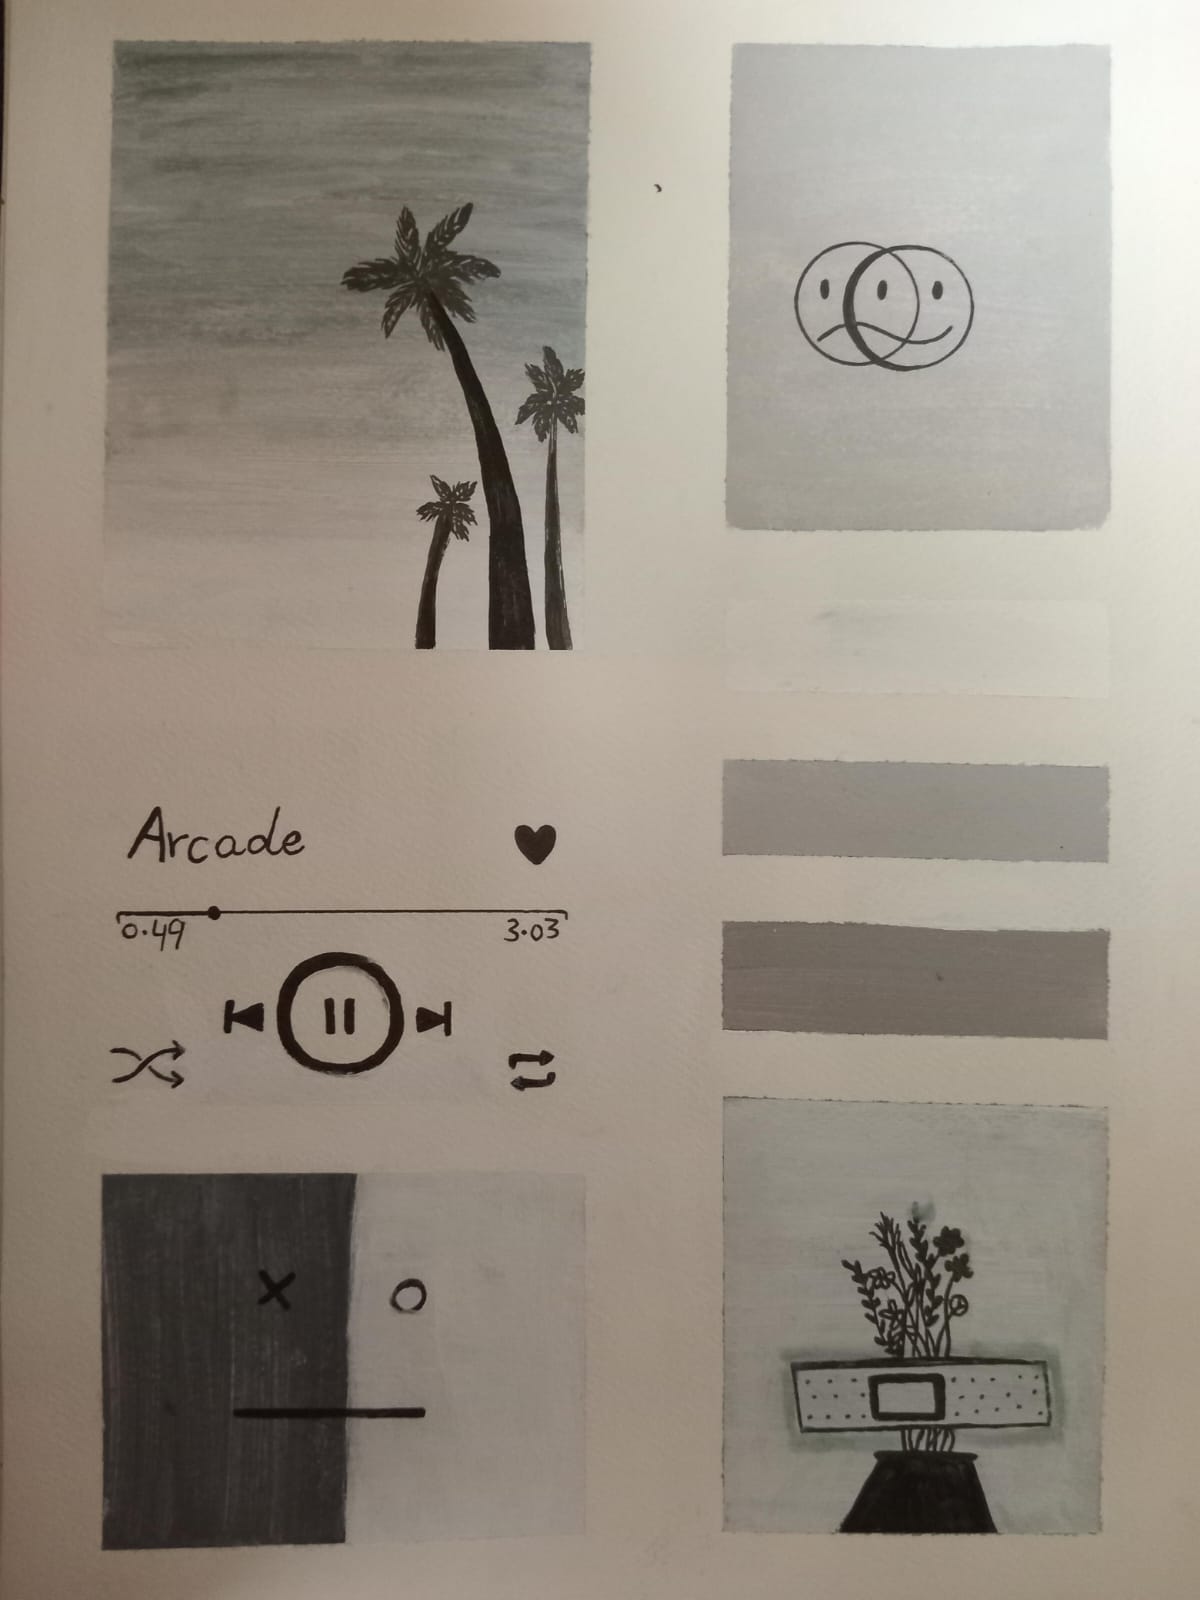 Arcade
0.49 3.03